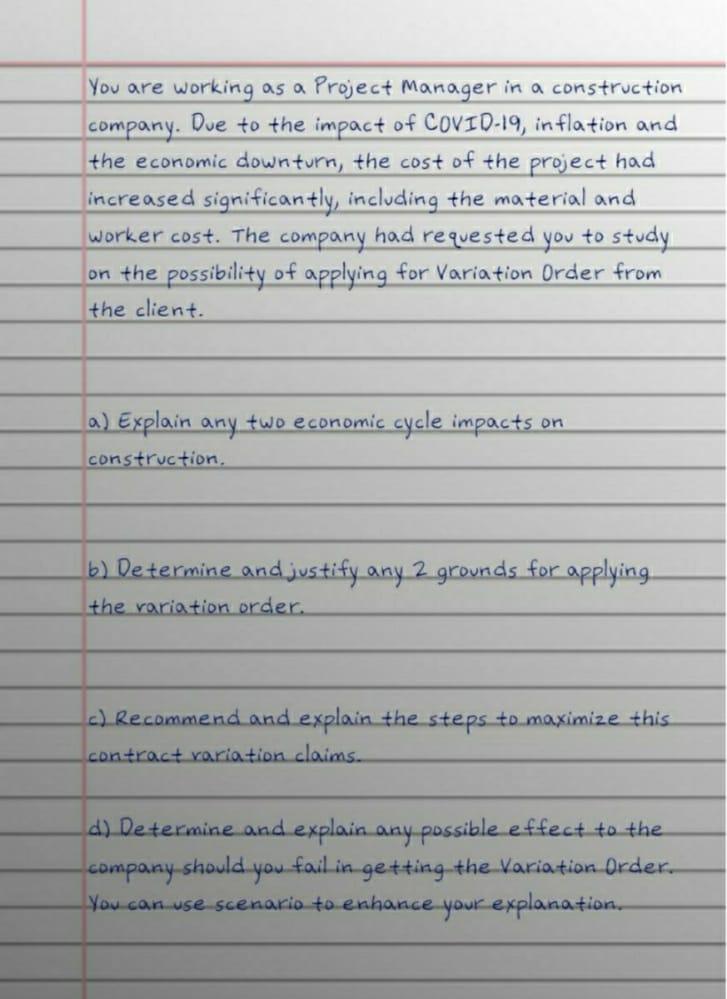 You are working as a Project Manager in a construction
company. Due to the impact of COVID-19, inflation and
the economic downturn, the cost of the project had
increased significantly, including the material and
worker cost. The company had requested you to study
on the possibility of applying for Variation Order from
the client.
a) Explain any two economic cycle impacts on
construction.
b) Determine and justify any 2 grounds for applying
the variation order.
c) Recommend and explain the steps to maximize this
contract variation claims.
d) Determine and explain any possible effect to the
company should you fail in getting the Variation Order.
You can use scenario to enhance your explanation.